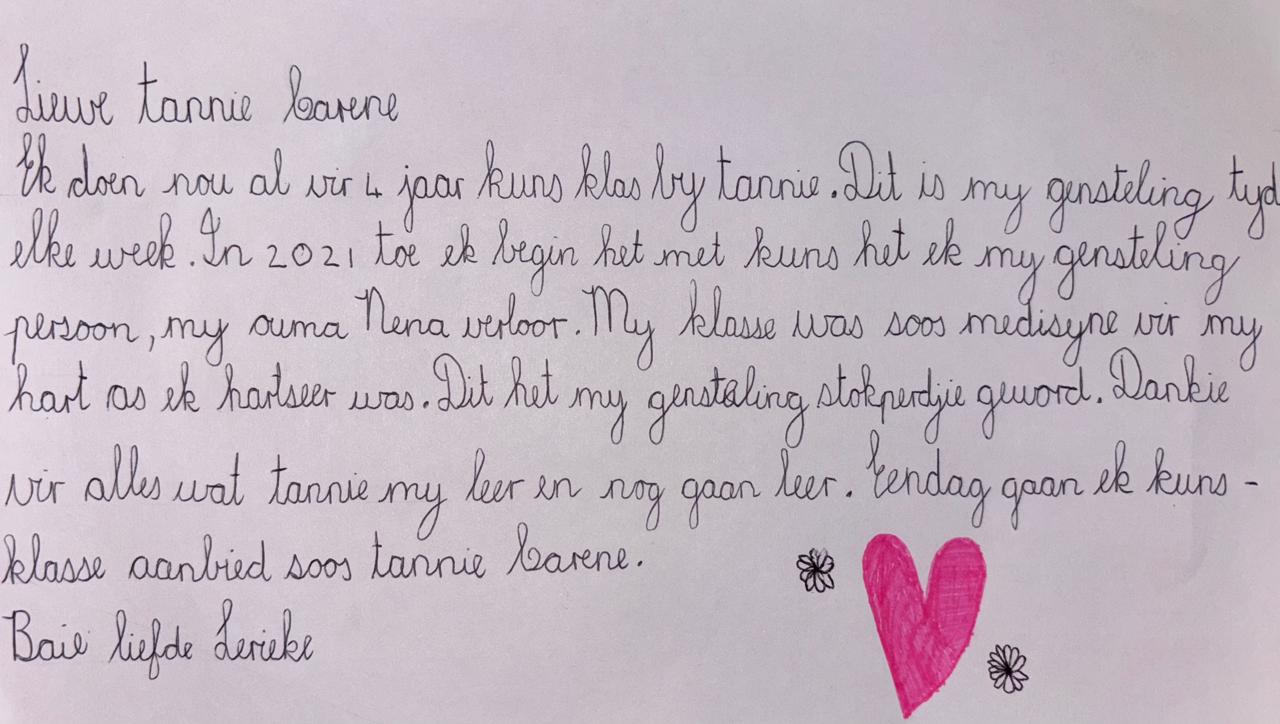 Liewe tannie Carene
Ek doen nou al vir 4 jaar kuns klas by tannie. Dit is my gensteling tyd
elke week. In 2021 toe ek begin het met kuns het ek my gensteling
persoon, my ouma Nena verloor. My klasse was soos medisyne vir my
hart as ek hartseer was. Dit het my genstaling stokperdjie geword. Dankie
vir alles wat tannie my leer en nog gaan leer. Eendag gaan ek kuns-
klasse aanbied soos tannie Carene.
Baie liefde Lerieke